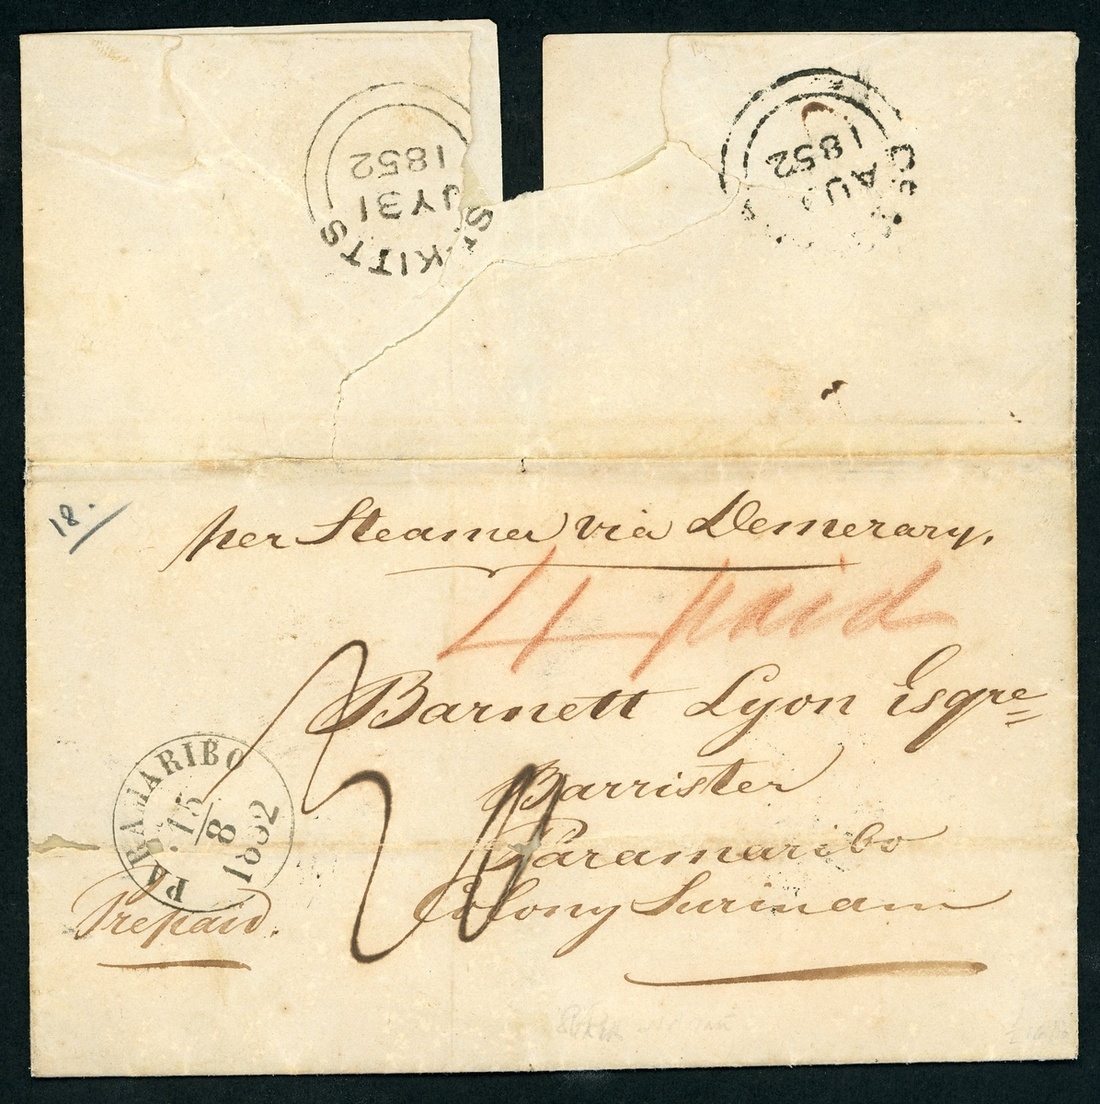 ST. KITTS
JY 31
1852
AU
1852
18.
per Steamer via Demerary.
4 paid
Barnett Lyon Esqre
Barrister
Paramaribo
Colony Surinam
PARAMARIBO
15/8
1852
Prepaid.